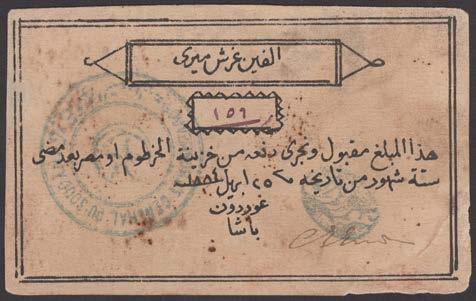 الفين غرش ميرى
١٥٩
هذا المبلغ مقبول وتجرى دفعه من خزينة الخرطوم او مصر بعد مضى
ستة شهور من تاريخه ٢٥ ابريل ١٨٨٤
غوردون
باشا